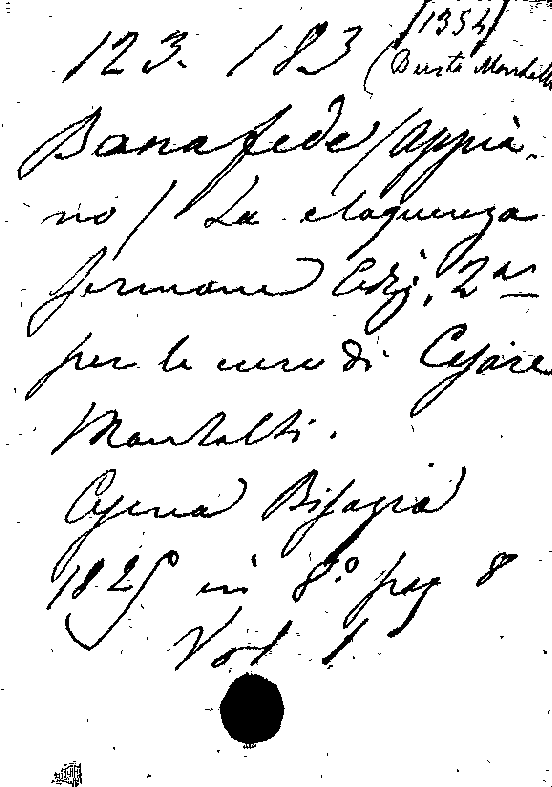 (1354)
123. 183 (Busta Montalti
Bonafede (Appia-
no) La eloquenza
sermone Ediz. 2ª
per le cure di Cesare
Montalti.
Cesena Bisazia
1825 in 8.º pag 8
Vol. 1